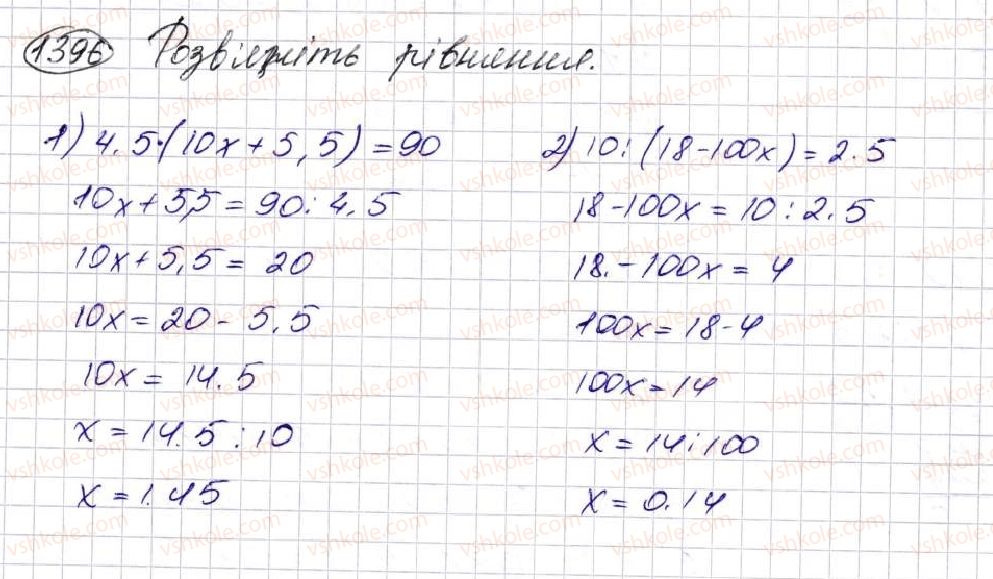 1396 Розв'яжіть рівняння.
1) 4.5·(10x+5,5)=90
10x+5,5=90:4.5
10x+5,5= 20
10x=20-5,5
10x= 14.5
x=14.5:10
x=1.45
2) 10:(18-100x)=2.5
18-100x=10:2.5
18.-100x=4
100x=18-4
100x=14
x=14:100
x=0.14